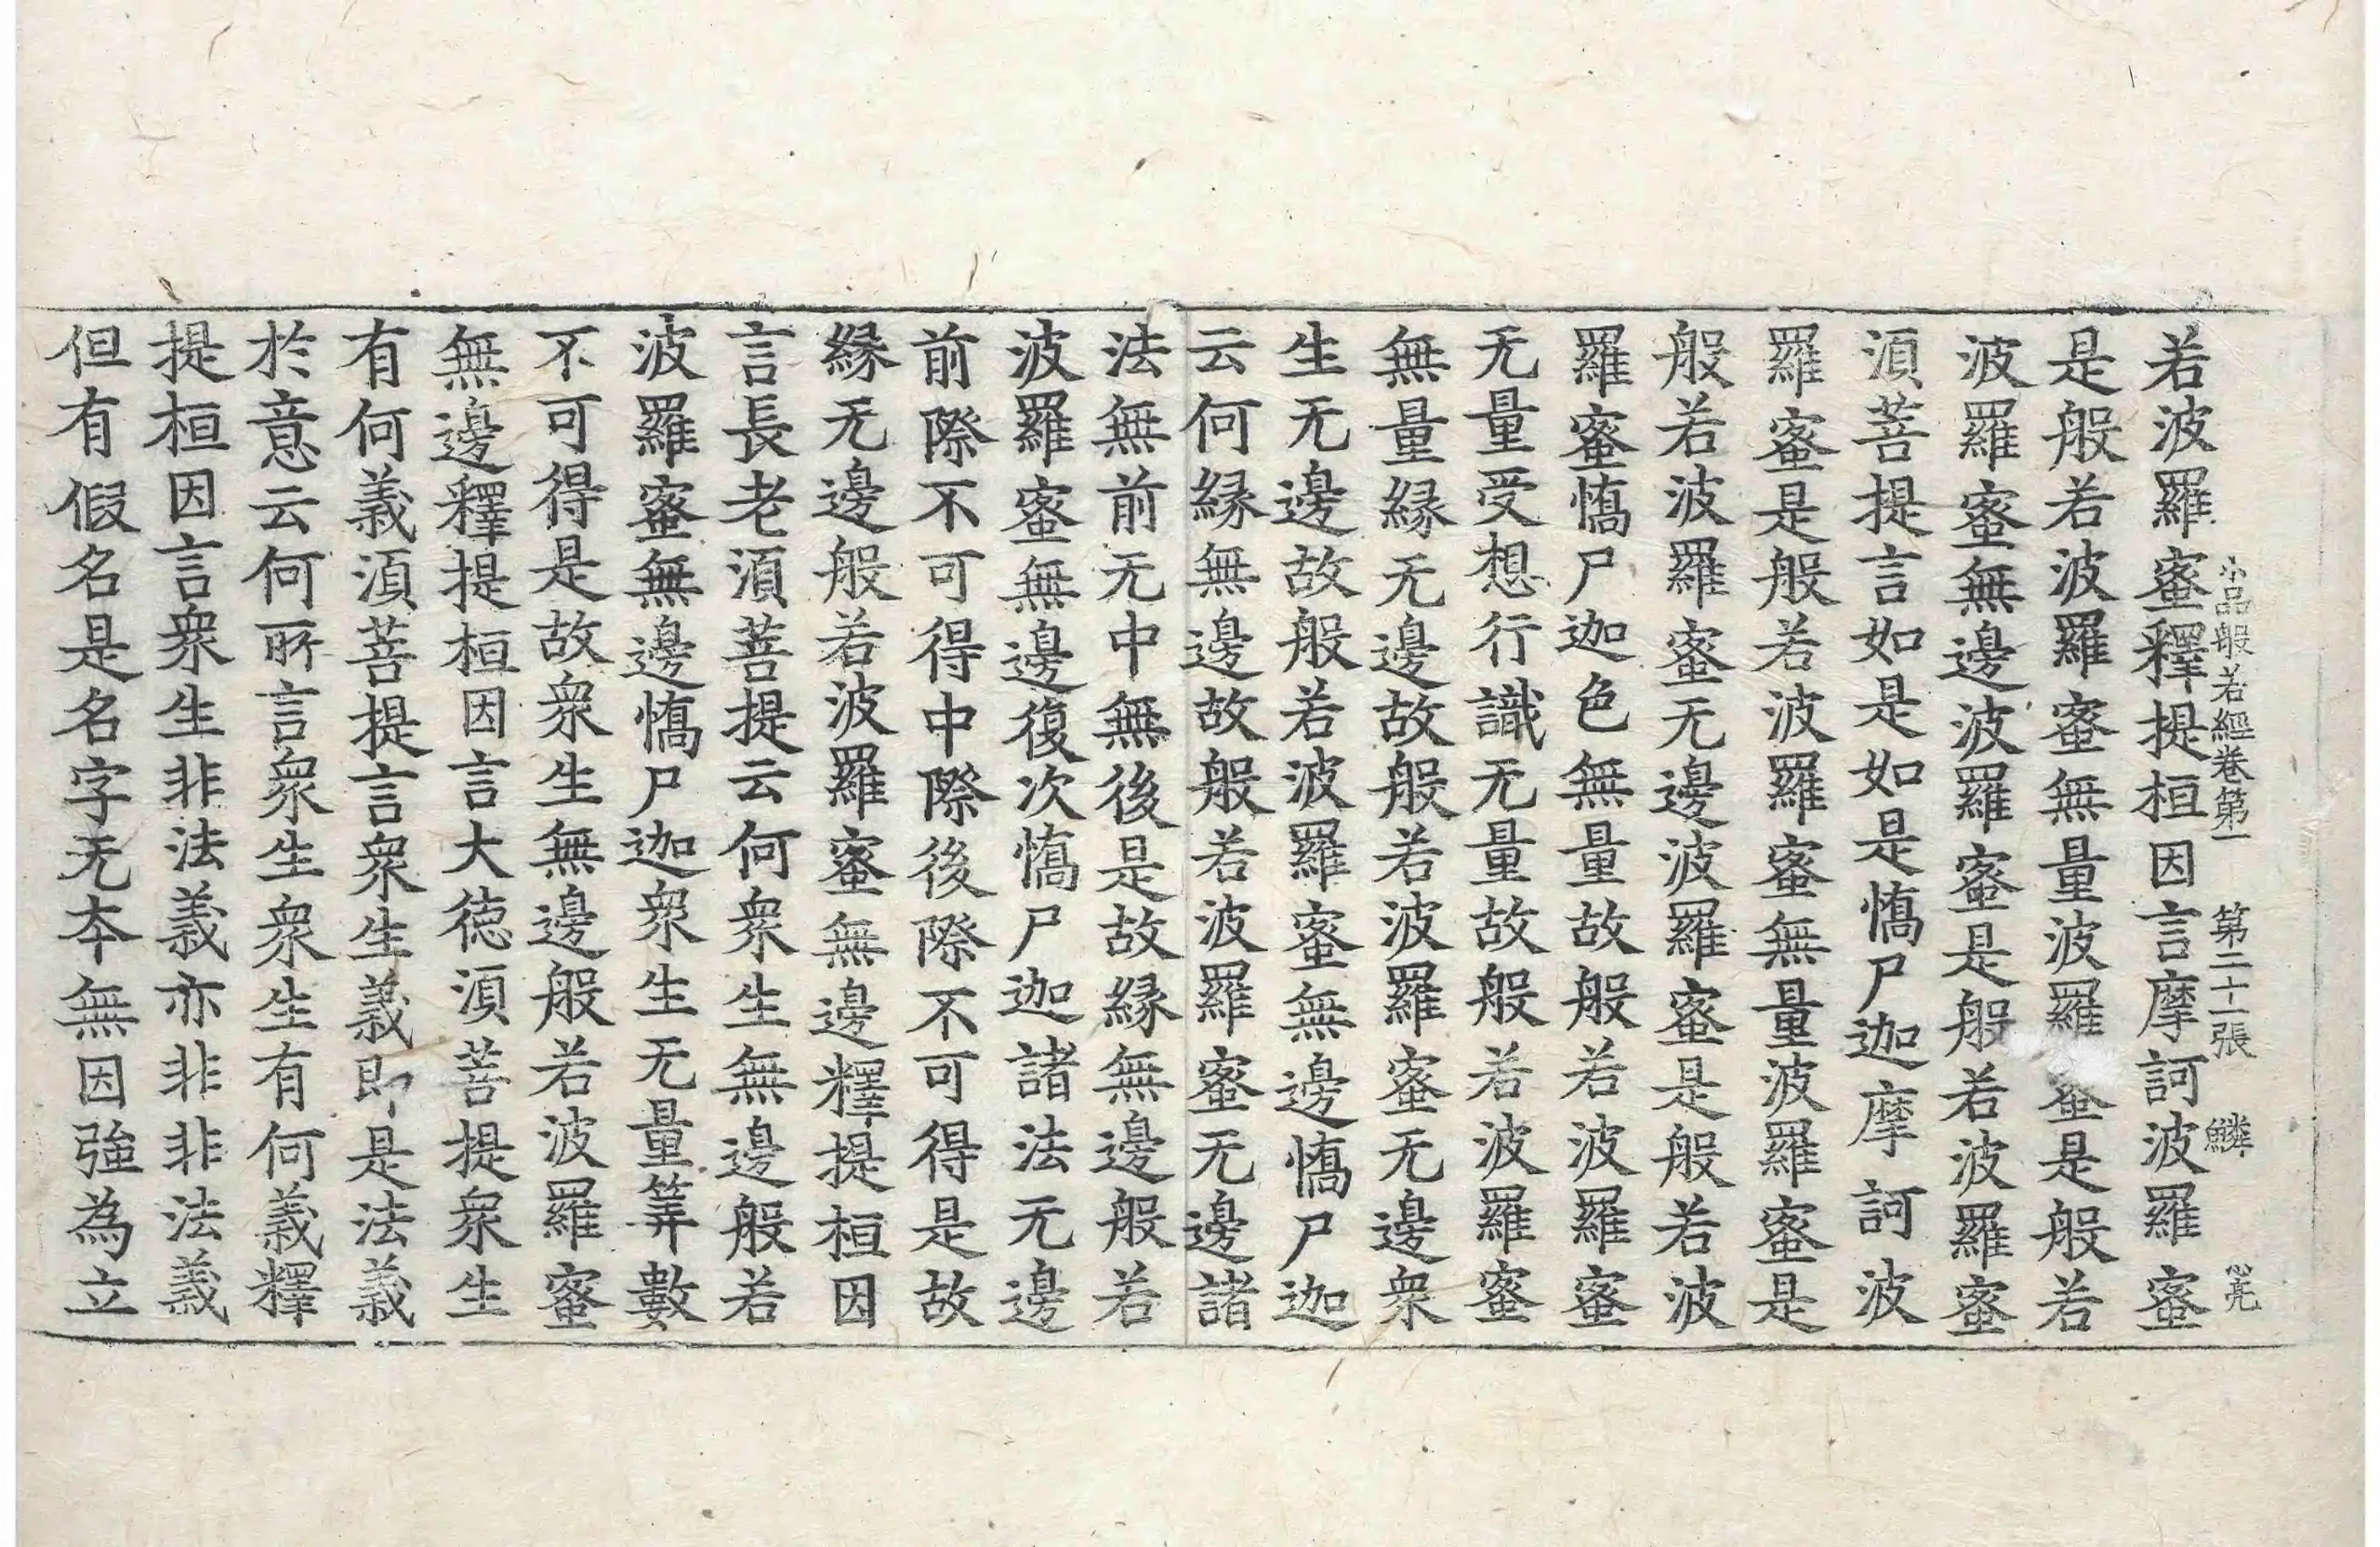 小品般若經卷第一 第二十一張 鱗 心亮
若波羅蜜釋提桓因言摩訶波羅蜜
是般若波羅蜜無量波羅蜜是般若
波羅蜜無邊波羅蜜是般若波羅蜜
湏菩提言如是如是憍尸迦摩訶波
羅蜜是般若波羅蜜無量波羅蜜是
般若波羅蜜无邊波羅蜜是般若波
羅蜜憍尸迦色無量故般若波羅蜜
无量受想行識无量故般若波羅蜜
無量縁无邊故般若波羅蜜无邊衆
生无邊故般若波羅蜜無邊憍尸迦
云何縁無邊故般若波羅蜜无邊諸
法無前无中無後是故縁無邊般若
波羅蜜無邊復次憍尸迦諸法无邊
前際不可得中際後際不可得是故
縁无邊般若波羅蜜無邊釋提桓因
言長老湏菩提云何衆生無邊般若
波羅蜜無邊憍尸迦衆生无量筭數
不可得是故衆生無邊般若波羅蜜
無邊釋提桓因言大德湏菩提衆生
有何義湏菩提言衆生義即是法義
於意云何所言衆生衆生有何義釋
提桓因言衆生非法義亦非非法義
但有假名是名字无本無因強為立